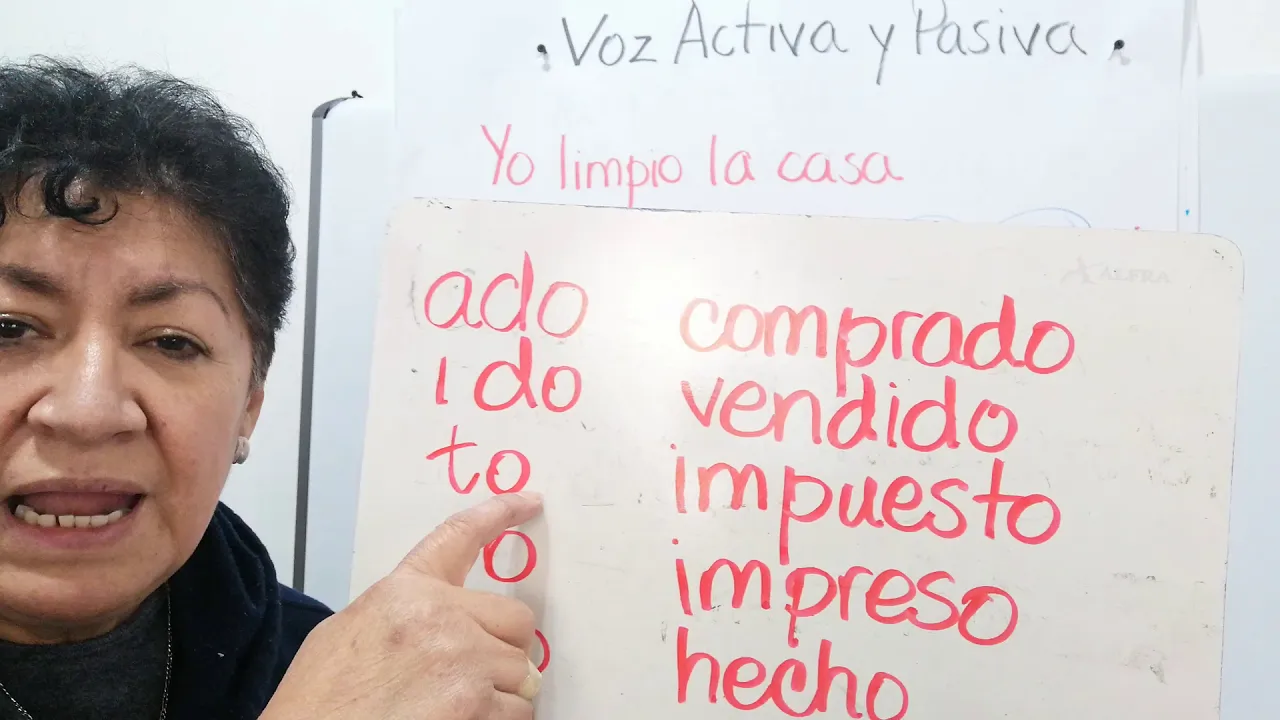 . Voz Activa y Pasiva .
Yo limpio la casa
ALFRA
ado comprado
ido vendido
to impuesto
o impreso
o hecho